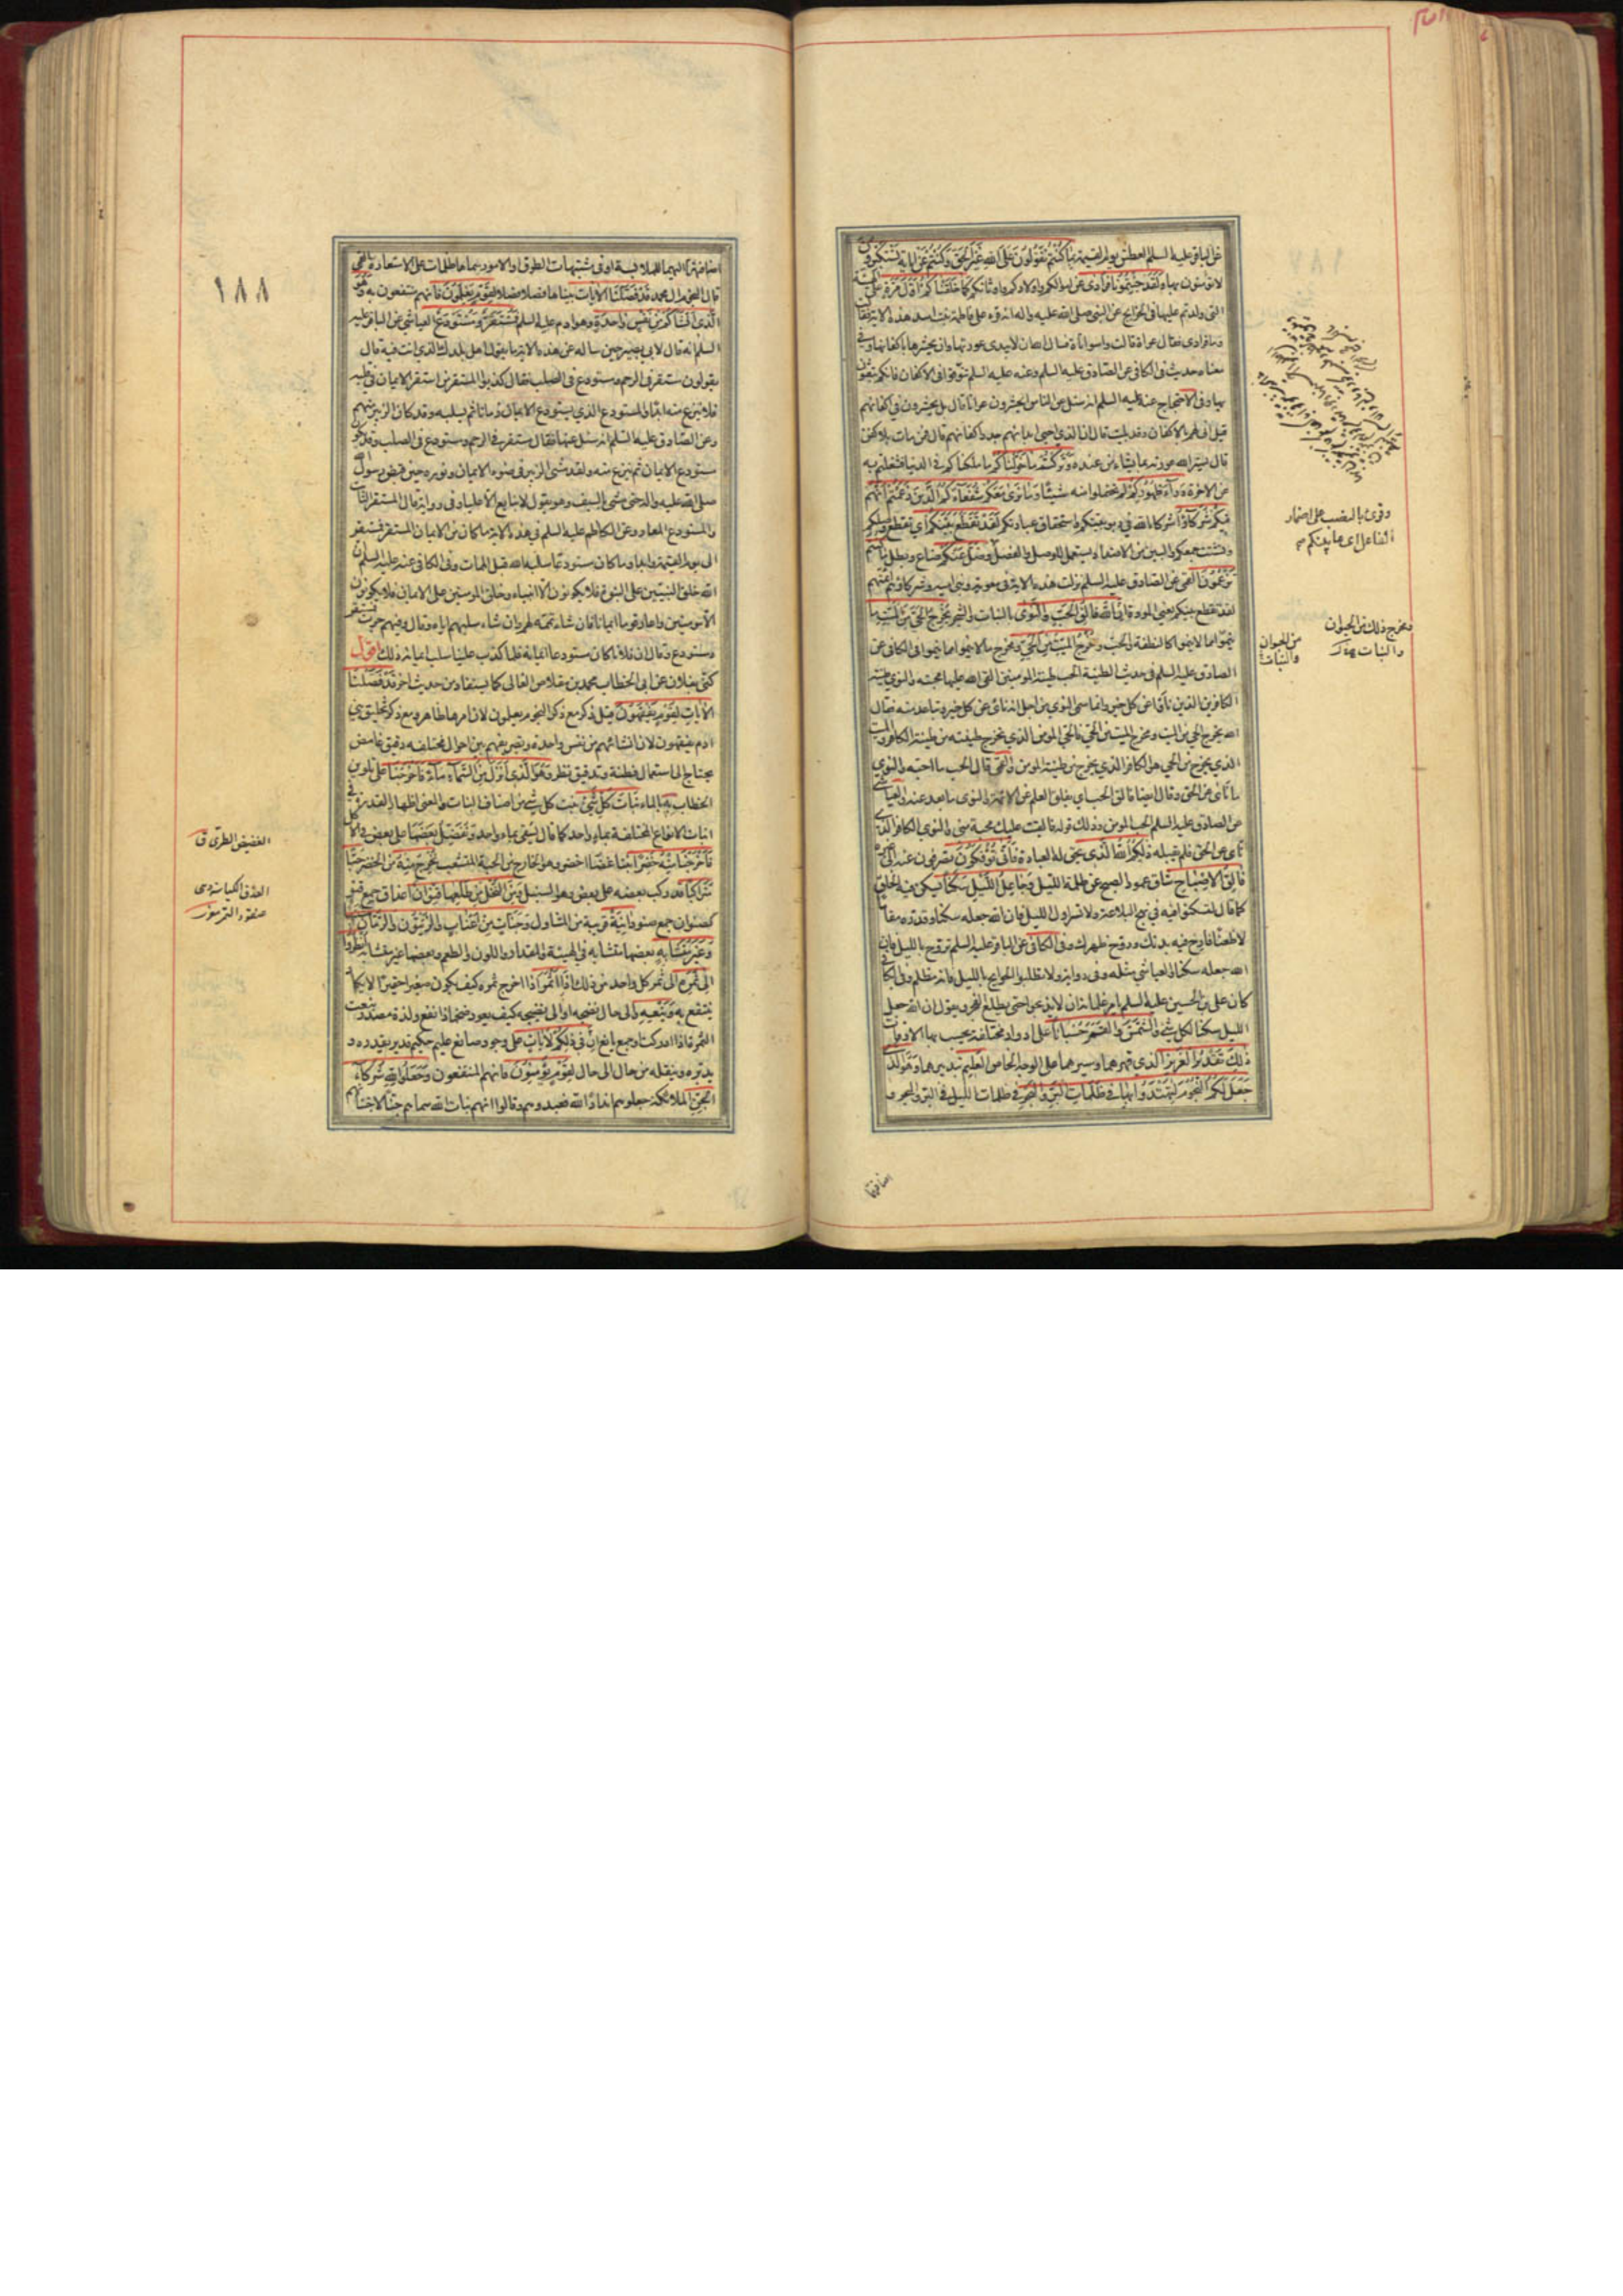 عن الباقر عليه السلم العطش يوم القيمة بما كنتم تقولون على الله غير الحق وكنتم عن اياته تستكبرون
لا تؤمنون بها ولقد جئتمونا فرادى عن اموالكم واولادكم واوثانكم كما خلقناكم اول مرة على الهيئة
التي ولدتم عليها في الخرايج عن النبي صلى الله عليه واله انه قرء على فاطمة بنت اسد هذه الاية فقالت
وما فرادى فقال عراة قالت واسواتاه فسال الله ان لا يبدى عورتها وان يحشرها باكفانها وفي
معناه حديث في الكافي عن الصادق عليه السلم وعنه عليه السلم تنوقوا في الاكفان فانكم تبعثون
بها وفي الاحتجاج عنه عليه السلم انه سئل عن الناس يحشرون عراة قال بل يحشرون في اكفانهم
قيل انى لهم بالاكفان وقد بليت قال ان الذي احيى ابدانهم جدد اكفانهم قال فمن مات بلا كفن
قال يستر الله عورته بما يشاء من عنده وتركتم ما خولناكم ما ملكناكم في الدنيا فشغلتم به
عن الاخرة وراء ظهوركم لم تحتملوا منه شيئا وما نرى معكم شفعاءكم الذين زعمتم انهم
فيكم شركاؤا شركاء الله في ربوبيتكم واستحقاق عبادتكم لقد تقطع بينكم اي تقطع وصلكم
وتشتت جمعكم والبين من الاضداد يستعمل للوصل والفصل وضل عنكم ضاع وبطل ما كنتم
تزعمون القمي عن الصادق عليه السلم نزلت هذه الاية في معوية وبني امية وشركاؤهم ائمتهم
لقد تقطع بينكم يعني المودة ان الله فالق الحب والنوى بالنبات والشجر يخرج الحي من الميت ما
ينمو مما لا ينمو كالنطفة والحب ومخرج الميت من الحي ومخرج ما لا ينمو مما ينمو في الكافي عن
الصادق عليه السلم في حديث الطينة الحب طينة المومنين القى الله عليها محبته والنوى طينة
الكافرين الذين ناوا عن كل خير وانما سمى النوى من اجل انه ناى عن كل خير وتباعد منه فقال
الله يخرج الحي من الميت ومخرج الميت من الحي فالحي المومن الذي يخرج طينته من طينة الكافر والميت
الذي يخرج من الحي هو الكافر الذي يخرج من طينة المومن والقمي قال الحب ما احبه والنوى
ما ناى عن الحق وقال ايضا فالق الحب اي يفلق العلم من الائمة والنوى ما بعد عنه والعياشي
عن الصادق عليه السلم الحب المومن وذلك قوله والقيت عليك محبة مني والنوى الكافر الذي
ناى عن الحق فلم يقبله ذلكم الله الذي يحق له العبادة فانى توفكون تصرفون عنه الى غيره
فالق الاصباح شاق عمود الصبح عن ظلمة الليل وجاعل الليل سكنا يسكن فيه الخلق
كما قال لتسكنوا فيه في نهج البلاغة ولا تسر اول الليل فان الله جعله سكنا وقدره مقاما
لا ظعنا فارح فيه بدنك وروح ظهرك وفي الكافي عن الباقر عليه السلم تزوج بالليل فان
الله جعله سكنا والعياشي مثله وفي رواية ولا تطلبوا الحوايج بالليل فانه مظلم وفي الكافي
كان علي بن الحسين عليه السلم يامر غلمانه ان لا يذبحوا حتى يطلع الفجر ويقول ان الله جعل
الليل سكنا لكل شيء والشمس والقمر حسبانا على ادوار مختلفة يحسب بها الاوقات
ذلك تقدير العزيز الذي قهرهما وسيرهما على الوجه الخاص العليم بتدبيرهما وهو الذي
جعل لكم النجوم لتهتدوا بها في ظلمات البر والبحر في ظلمات الليل في البر والبحر و
اضافتها
وقرئ بالنصب على اضمار
الفاعل اى ما بينكم
ومخرج ذلك من الحيوان
والنبات
من الحيوان
والنبات
١٨٨
اضافتها اليهما للملابسة او في مشتبهات الطرق والامور سماها ظلمات على الاستعارة القمي
قال النجوم ال محمد قد فصلنا الايات بيناها فصلا فصلا لقوم يعلمون فانهم منتفعون به وهو
الذي انشاكم من نفس واحدة وهو ادم عليه السلم فمستقر ومستودع العياشي عن الباقر عليه
السلم انه قال لابي بصير حين ساله عن هذه الاية ما يقول اهل بلدك الذي انت فيه قال
يقولون مستقر في الرحم ومستودع في الصلب فقال كذبوا المستقر من استقر الايمان في قلبه
فلا ينزع منه ابدا والمستودع الذي يستودع الايمان زمانا ثم يسلبه وقد كان الزبير منهم
وعن الصادق عليه السلم انه سئل عنها فقال مستقر في الرحم ومستودع في الصلب وقد يكون
مستودع الايمان ثم ينزع منه ولقد مشى الزبير في ضوء الايمان ونوره حين قبض رسول الله
صلى الله عليه واله حتى مشى بالسيف وهو يقول لا نبايع الا عليا وفي رواية قال المستقر الثابت
والمستودع المعار وعن الكاظم عليه السلم في هذه الاية ما كان من الايمان المستقر فمستقر
الى يوم القيمة وابدا وما كان مستودعا سلبه الله قبل الممات وفي الكافي عنه عليه السلم ان
الله خلق النبيين على النبوة فلا يكونون الا انبياء وخلق المومنين على الايمان فلا يكونون
الا مومنين واعار قوما ايمانا فان شاء تممه لهم وان شاء سلبهم اياه وقال وفيهم جرت فمستقر
ومستودع وقال ان فلانا كان مستودعا ايمانه فلما كذب علينا سلب ايمانه ذلك اقول
كنى بفلان عن ابي الخطاب محمد بن مقلاص الغالي كما يستفاد من حديث اخر قد فصلنا
الايات لقوم يفقهون قيل ذكر مع ذكر النجوم يعلمون لان امرها ظاهر ومع ذكر تخليق بني
ادم يفقهون لان انشائهم من نفس واحدة وتصريفهم بين احوال مختلفه دقيق غامض
يحتاج الى استعمال فطنة وتدقيق نظر وهو الذي انزل من السماء ماء فاخرجنا على تلوين
الخطاب به بالماء نبات كل شيء نبت كل شيء من اصناف النبات والمعنى اظهار القدرة في
انبات الانواع المختلفة بماء واحد كما قال يسقى بماء واحد ونفضل بعضها على بعض في الاكل
فاخرجنا منه خضرا نباتا غضا اخضر وهو الخارج من الحبة المتشعب نخرج منه من الخضر حبا
متراكبا قد ركب بعضه على بعض وهو السنبل ومن النخل من طلعها قنوان اعذاق جمع قنو
كصنوان جمع صنو دانية قريبة من المتناول وجنات من اعناب والزيتون والرمان مشتبها
وغير متشابه بعضها متشابه في الهيئة والمقدار واللون والطعم وبعضها غير متشابه انظروا
الى ثمره الى ثمر كل واحد من ذلك اذا اثمر اذا اخرج ثمره كيف يكون صغيرا حقيرا لا يكاد
ينتفع به وينعه والى حال نضجه او الى نضيجه كيف يعود ضخما ذا نفع ولذة مصدر ينعت
الثمرة اذا ادركت او جمع يانع ان في ذلكم لايات على وجود صانع عليم حكيم قدير يقدره و
يدبره وينقله من حال الى حال لقوم يؤمنون فانهم المنتفعون وجعلوا لله شركاء
الجن الملائكة جعلوهم اندادا لله فعبدوهم وقالوا انهم بنات الله سماهم جنا لاجتنانهم
الغضيض الطري ق